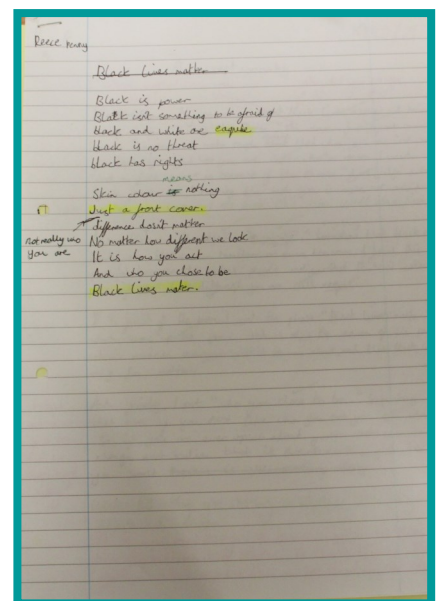 Reece
Black lives matter
Black is power
Black isn't something to be afraid of
black and white are eaquile
black is no threat
black has rights
means
Skin colour is nothing
Just a front cover.
differences dosn't matter
not really who
you are
No matter how different we look
It is how you act
And who you chose to be
Black lives mater.